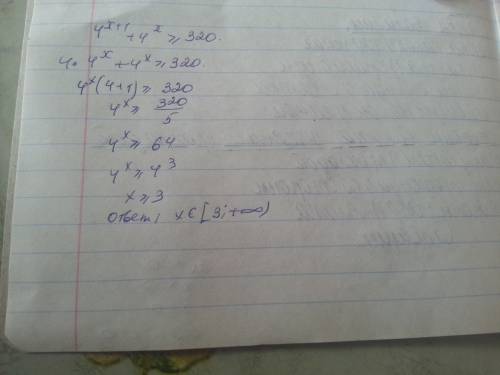 4^{x+1} + 4^x ≥ 320.
4 · 4^x + 4^x ≥ 320.
4^x (4+1) ≥ 320
4^x ≥ 320/5
4^x ≥ 64
4^x ≥ 4^3
x ≥ 3
Ответ: x ∈ [3; +∞)